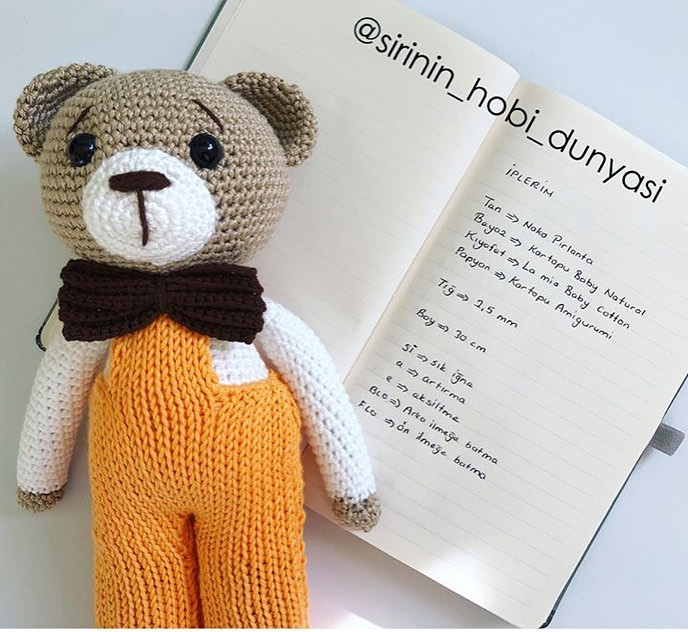 @sirinin_hobi_dunyasi
İPLERİM
Tan => Nako Pırlanta
Beyaz => Kartopu Baby Natural
Kıyafet => La mia Baby Cotton
Papyon => Kartopu Amigurumi
Tığ => 2,5 mm
Boy => 30 cm
Sİ => sık iğne
a => artırma
e => eksiltme
BLO => Arka ilmeğe batma
FLO => Ön ilmeğe batma